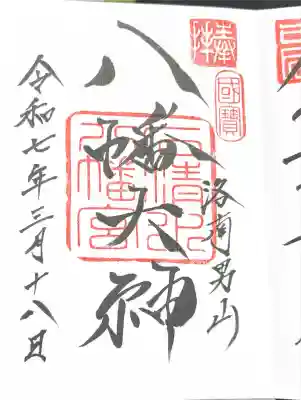 奉拝
国寳
洛南男山
八幡大神
石清水八幡宮
令和七年三月十八日